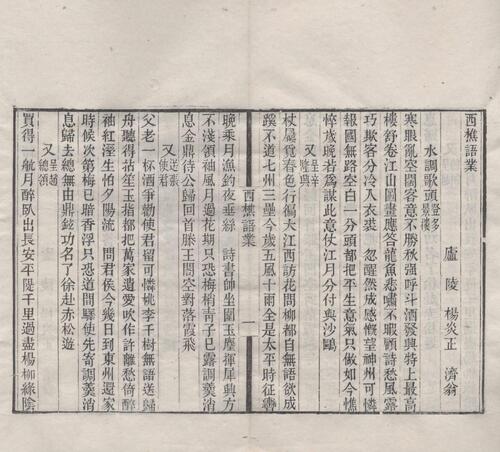 西樵語業
廬陵 楊炎正 濟翁
水調歌頭 登多景樓
寒眼亂空闊客意不勝秋强呼斗酒發興特上最高
樓舒卷江山圖畫應答龍魚悲嘯不暇顧詩愁風露
巧欺客分冷入衣裘 忽醒然成感慨望神州可憐
報國無路空白一分頭都把平生意氣只做如今憔
悴歲晚若爲謀此意仗江月分付與沙鷗
又 呈辛隆興
杖屨覓春色行徧大江西訪花問柳都自無語欲成
蹊不道七州三壘今歲五風十雨全是太平時征轡
西樵語業
一
晚乘月漁釣夜垂絲 詩書帥坐圍玉麈揮犀興方
不淺領袖風月過花期只恐梅梢青子已露調羹消
息金鼎待公歸回首滕王閣空對落霞飛
又 送張使君
父老一杯酒爭勸使君留可憐桃李千樹無語送歸
舟聽得拈笙玉指都把萬家遺愛吹作許離愁倚醉
袖紅溼生怕夕陽流 問君侯今幾日到東州還家
時候次第梅已暗香浮只恐道間驛使先寄調羹消
息歸去總無由鼎鉉功名了徐赴赤松遊
又 呈趙總領
買得一航月醉臥出長安平隄千里過盡楊柳綠陰